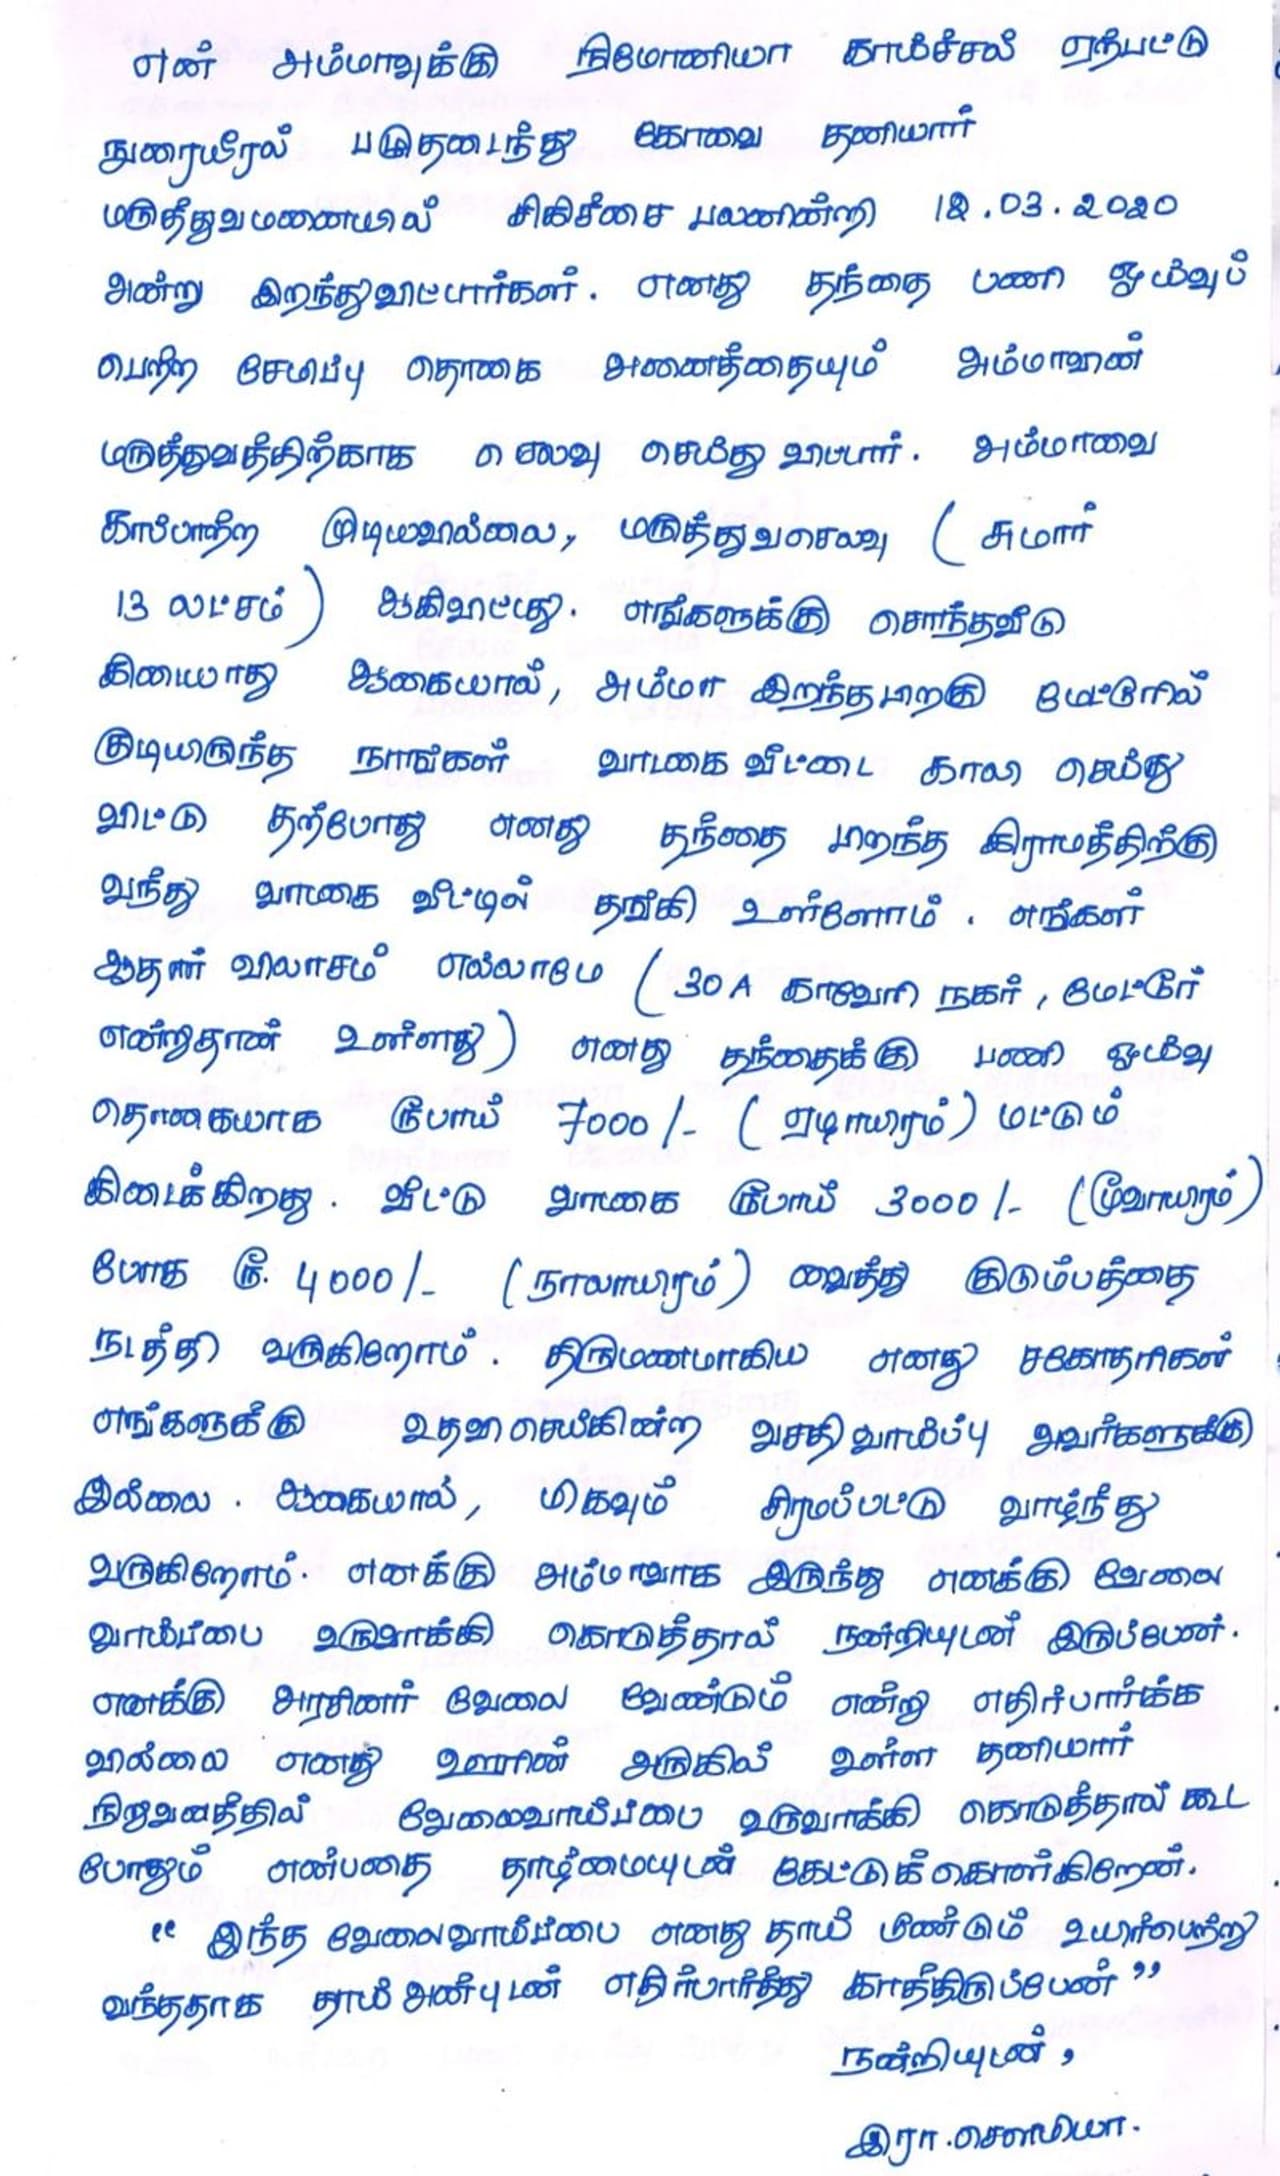 என் அம்மாவுக்கு நிமோனியா காய்ச்சல் ஏற்பட்டு
நுரையீரல் பழுதடைந்து கோவை தனியார்
மருத்துவமனையில் சிகிச்சை பலனின்றி 12.03.2020
அன்று இறந்துவிட்டார்கள். எனது தந்தை பணி ஓய்வுப்
பெற்ற சேமிப்பு தொகை அனைத்தையும் அம்மாவின்
மருத்துவத்திற்காக செலவு செய்து விட்டார். அம்மாவை
காப்பாற்ற முடியவில்லை, மருத்துவசெலவு ( சுமார்
13 லட்சம் ) ஆகிவிட்டது. எங்களுக்கு சொந்தவீடு
கிடையாது ஆகையால், அம்மா இறந்தபிறகு மேட்டூரில்
குடியிருந்த நாங்கள் வாடகை வீட்டை காலி செய்து
விட்டு தற்போது எனது தந்தை பிறந்த கிராமத்திற்கு
வந்து வாடகை வீட்டில் தங்கி உள்ளோம். எங்கள்
ஆதார் விலாசம் எல்லாமே ( 30A காவேரி நகர், மேட்டூர்
என்றுதான் உள்ளது ) எனது தந்தைக்கு பணி ஓய்வு
தொகையாக ரூபாய் 7000/- ( ஏழாயிரம் ) மட்டும்
கிடைக்கிறது. வீட்டு வாடகை ரூபாய் 3000/- (மூவாயிரம்)
போக ரூ. 4000/- ( நாலாயிரம் ) வைத்து குடும்பத்தை
நடத்தி வருகிறோம். திருமணமாகிய எனது சகோதரிகள்
எங்களுக்கு உதவிசெய்கின்ற வசதி வாய்ப்பு அவர்களுக்கு
இல்லை. ஆகையால், மிகவும் சிரமப்பட்டு வாழ்ந்து
வருகிறோம். எனக்கு அம்மாவாக இருந்து எனக்கு வேலை
வாய்ப்பை உருவாக்கி கொடுத்தால் நன்றியுடன் இருப்பேன்.
எனக்கு அரசினர் வேலை வேண்டும் என்று எதிர்பார்க்க
வில்லை எனது ஊரின் அருகில் உள்ள தனியார்
நிறுவனத்தில் வேலைவாய்ப்பை உருவாக்கி கொடுத்தால் கூட
போதும் என்பதை தாழ்மையுடன் கேட்டுக் கொள்கிறேன்.
“ இந்த வேலைவாய்ப்பை எனது தாய் மீண்டும் உயிர்பெற்று
வந்ததாக தாய் அன்புடன் எதிர்பார்த்து காத்திருப்பேன் ”
நன்றியுடன்,
இரா.சௌமியா.